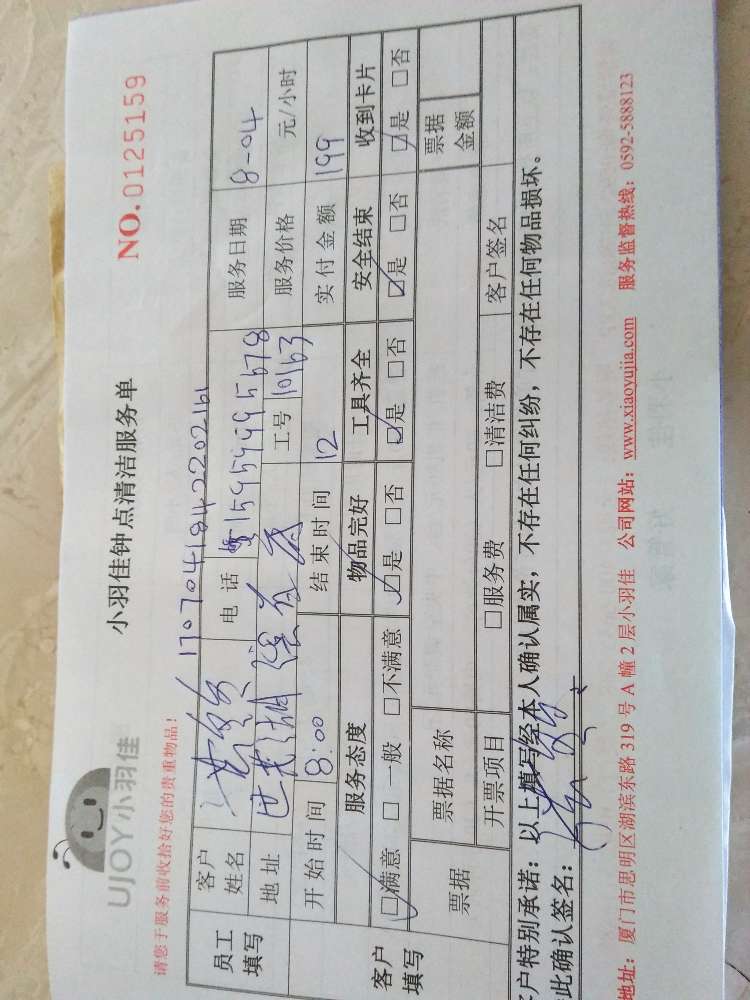 UJOY小羽佳
小羽佳钟点清洁服务单
NO.0125159
请您于服务前收拾好您的贵重物品!
1707041842202161
员工填写
客户姓名 电话 15959995678 服务日期 8-04
地址 工号 10163 服务价格 元/小时
客户填写
开始时间 8:00 结束时间 12 实付金额 199
服务态度 物品完好 工具齐全 安全结束 收到卡片
☑满意 □一般 □不满意 ☑是 □否 ☑是 □否 ☑是 □否 ☑是 □否
票据 票据名称 票据金额
开票项目 □服务费 □清洁费 客户签名
客户特别承诺:以上填写经本人确认属实,不存在任何纠纷,不存在任何物品损坏。
此确认签名:
地址:厦门市思明区湖滨东路319号A幢2层小羽佳 公司网站:www.xiaoyujia.com 服务监督热线:0592-5888123